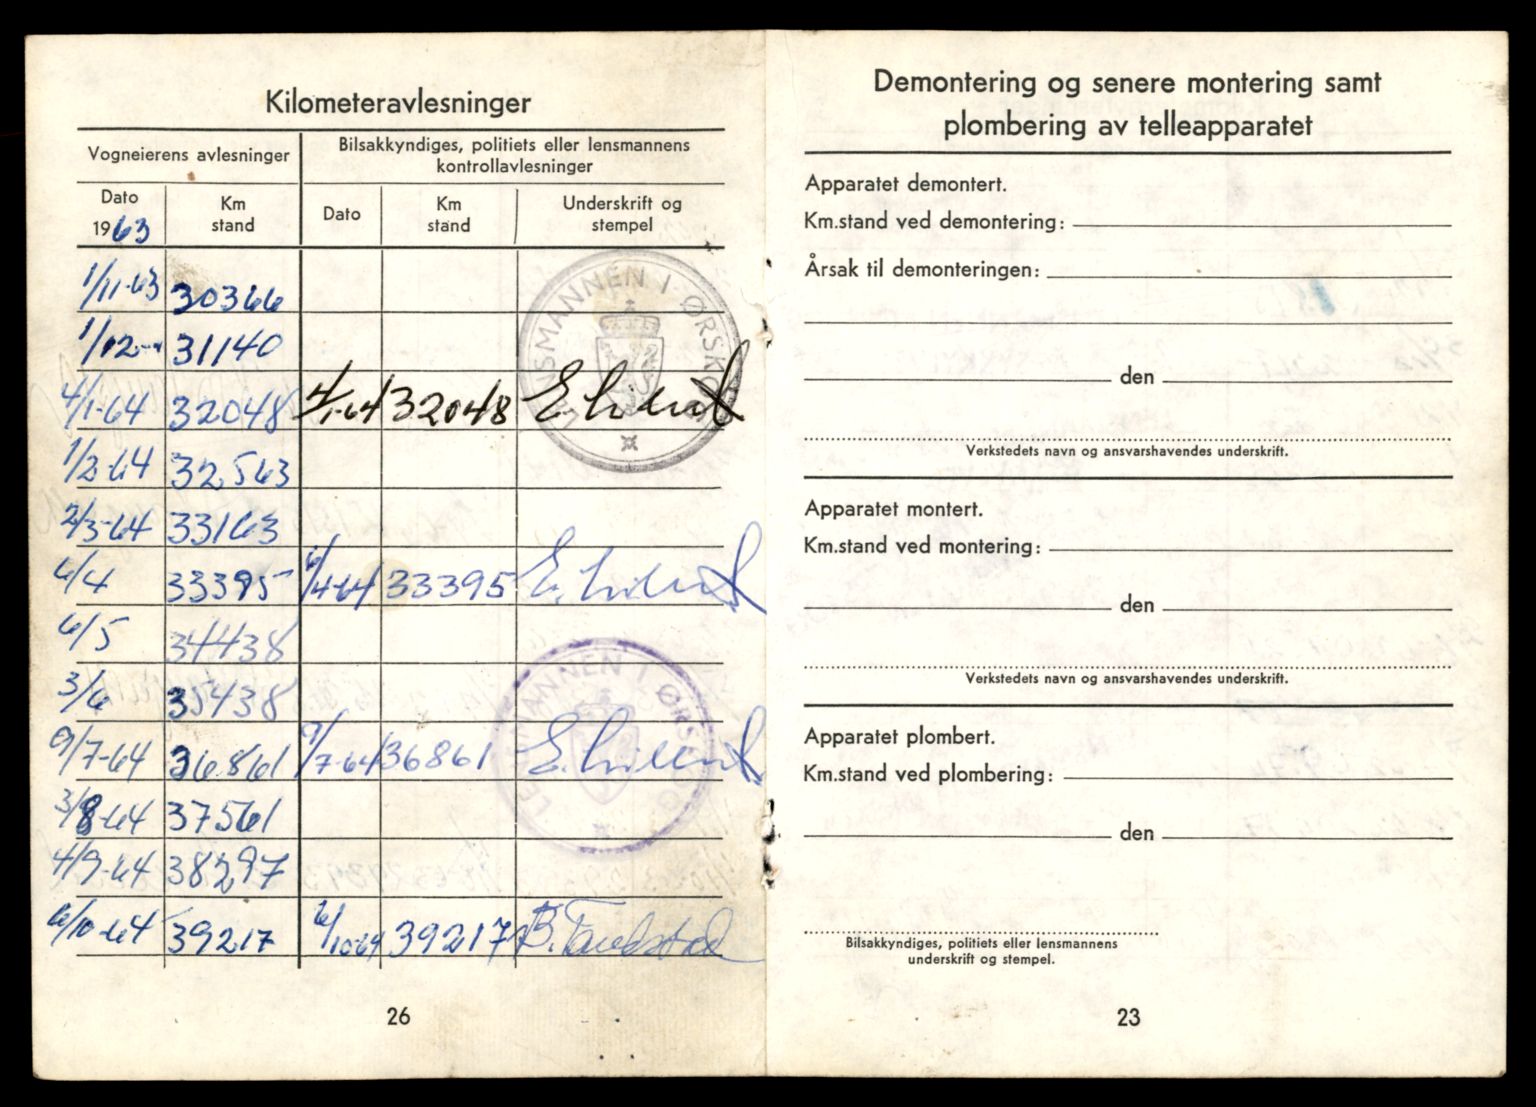 Kilometeravlesninger
Vogneierens avlesninger
Bilsakkyndiges, politiets eller lensmannens
kontrollavlesninger
Dato
1963
Km
stand
Dato
Km
stand
Underskrift og
stempel
LENSMANNEN I ØRSKOG
1/11-63 30366
1/12- 31140
4/1-64 32048 4/1-64 32048
1/2-64 32563
2/3-64 33163
6/4 33395 6/4-64 33395
6/5 34438
3/6 35438
9/7-64 36861 9/7-64 36861
LENSMANNEN I ØRSKOG
3/8-64 37561
4/9-64 38297
6/10-64 39217 6/10-64 39217
26
Demontering og senere montering samt
plombering av telleapparatet
Apparatet demontert.
Km.stand ved demontering:
Årsak til demonteringen:
den
Verkstedets navn og ansvarshavendes underskrift.
Apparatet montert.
Km.stand ved montering:
den
Verkstedets navn og ansvarshavendes underskrift.
Apparatet plombert.
Km.stand ved plombering:
den
Bilsakkyndiges, politiets eller lensmannens
underskrift og stempel.
23